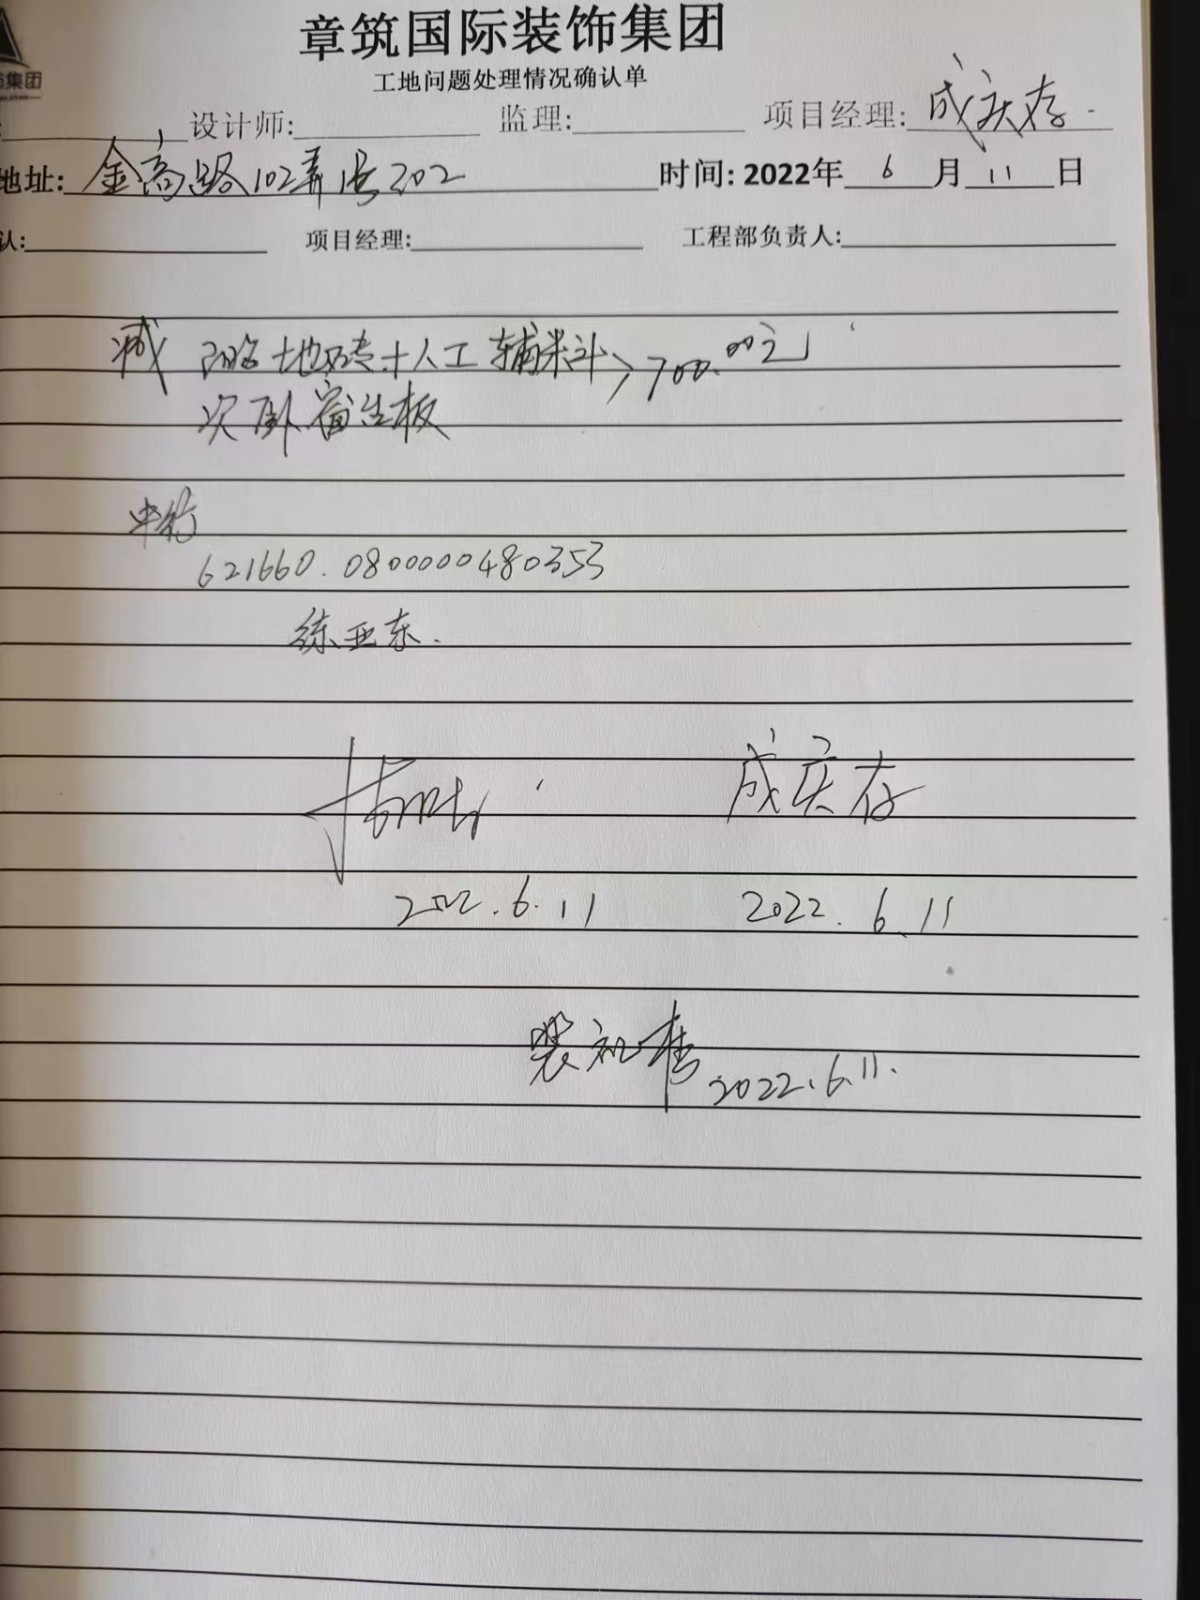 章筑国际装饰集团
饰集团
工地问题处理情况确认单
设计师: 监理: 项目经理: 成庆存
地址: 金高路102弄 202 时间: 2022年 6 月 11 日
认: 项目经理: 工程部负责人:
减 地砖+人工 辅料 700.00元
次卧 生板
中行
621660.0800000480353
练亚东.
成庆存
2022.6.11 2022.6.11
2022.6.11.